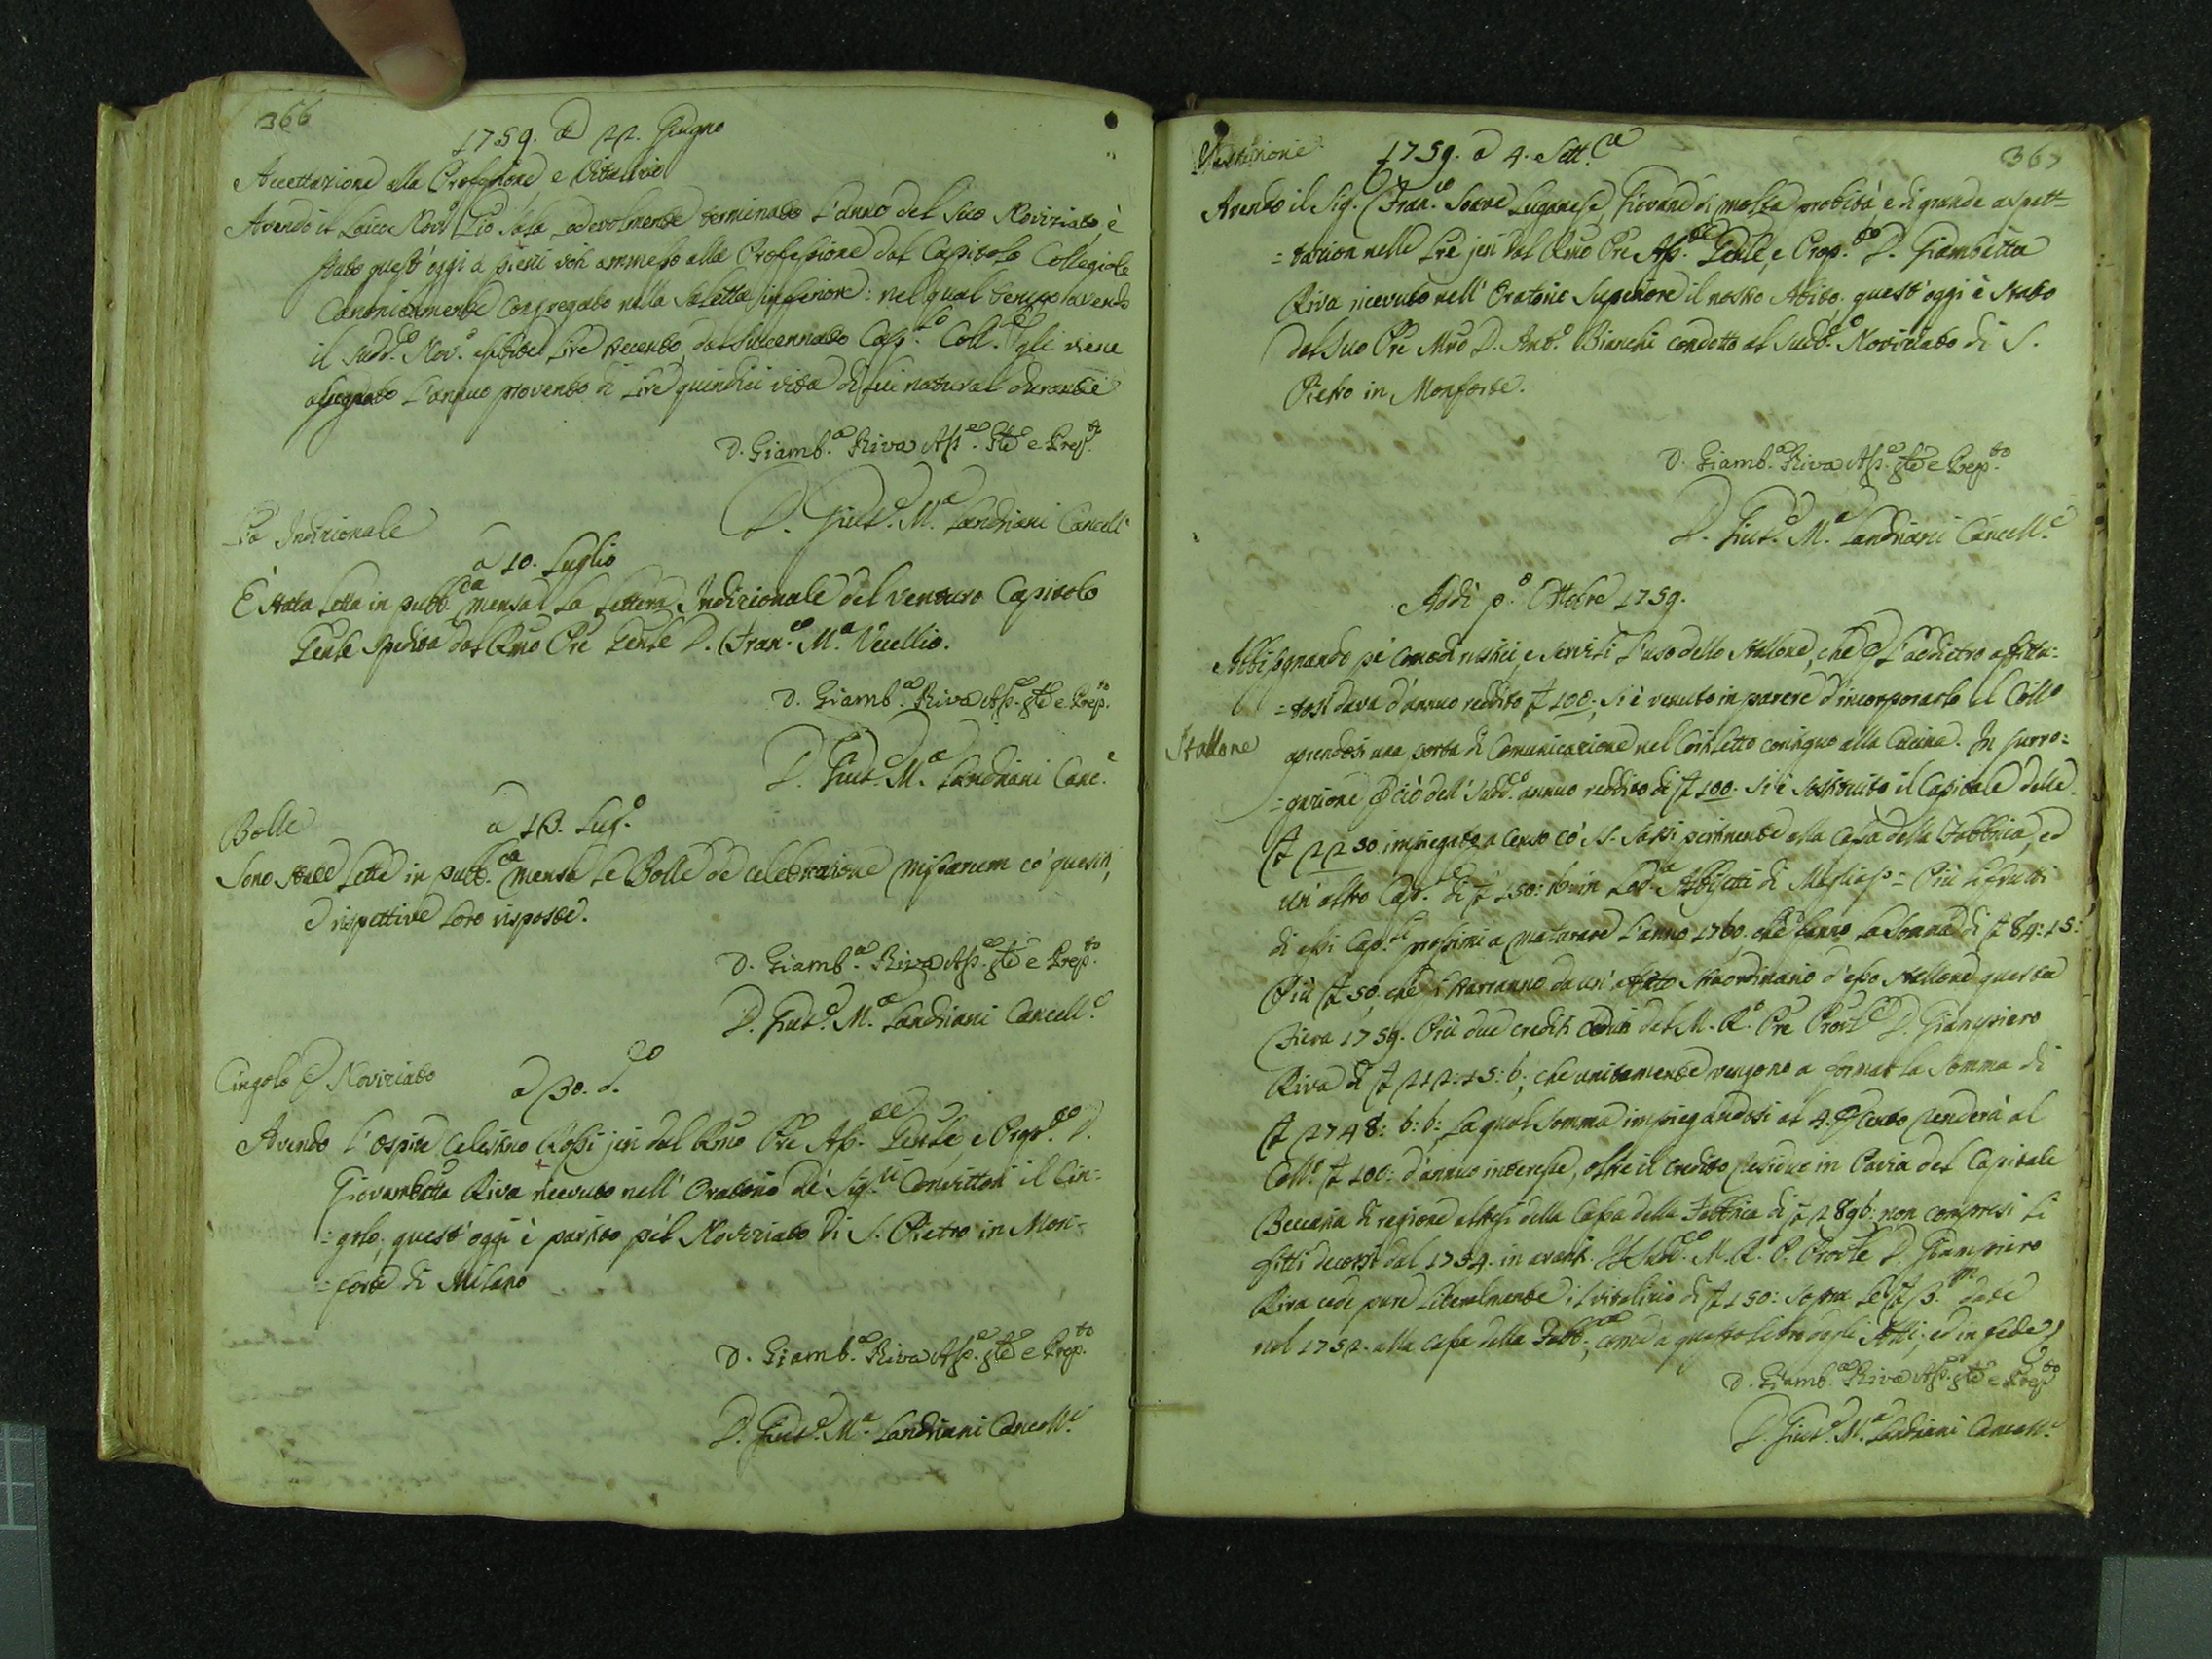 366
1759. a 22. Giugno
Accettazione alla Professione e Vitalizio
Avendo il Laico Nov.o Pio Sala lodevolmente terminato l'anno del suo Noviziato, è
stato quest'oggi a pieni voti ammesso alla Professione dal Capitolo Collegiale
Canonicamente congregato nella Saletta inferiore: nel qual tempo avendo
il sudd.o Nov.o esibite Lire trecento, dal succennato Cap.lo Coll.le gli viene
assegnato l'annuo provento di Lire quindici vita di lui natural durante
D. Giamb.a Riva Ass.e Gle e Prep.to
D. Gius.e M.a Landriani Cancell.e
La Indizionale
a 10. Luglio
È stata letta in pubb.ca mensa la Lettera Indizionale del venturo Capitolo
Genle spedita dal Rmo Pre Genle D. Fran.co M.a Vecellio.
D. Giamb.a Riva Ass.e gle e Prep.to
D. Gius.e M.a Landriani Canc.e
Bolle
a 13. Lug.o
Sono state lette in pubb.ca mensa le Bolle de celebratione missarum co' quesiti,
e rispettive loro risposte.
D. Giamb.a Riva Ass.e gle e Prep.to
D. Gius.e M.a Landriani Cancell.e
Cingolo e Noviziato
a 30. d.o
Avendo l'ospite Celestino Rossi jeri dal Rmo Pre Ass.te Genle, e Prep.to D.
Giovambatta Riva ricevuto nell'Oratorio de' Sig.ri Convittori il Cin=
=golo; quest'oggi è partito pel Noviziato di S. Pietro in Mon=
=forte di Milano
D. Giamb.a Riva Ass.e gle e Prep.to
D. Gius.e M.a Landriani Cancell.e
367
Vestizione
1759. a 4. Sett.e
Avendo il Sig. Fran.co Soave Luganese, Giovane di molta probità, e di grande aspett=
=tazion nelle Lre jeri dal Rmo Pre Ass.te Genle, e Prop.to D. Giambatta
Riva ricevuto nell'Oratorio Superiore il nostro Abito. quest'oggi è stato
dal suo Pre Mro D. Ant.o Bianchi condotto al sudd.o Noviziato di S.
Pietro in Monforte.
D. Giamb.a Riva Ass.e gle e Prep.to
D. Gius.e M.a Landriani Cancell.e
Addì p.o Ottobre 1759.
Abbisognando pe' comodi rustici, e servizi l'uso dello Stallone, che per l'addietro affitta=
=tosi dava d'annuo reddito £ 100., si è venuto in parere d'incorporarlo al Coll.o
Stallone
aprendosi una porta di comunicazione nel Cortiletto contiguo alla Cucina. In surro=
=gazione perciò dell' sudd.o annuo reddito di £ 100. si è sostituito il Capitale delle
£ 2250 impiegato a censo co' SS. Sassi pertinente alla Casa della Fabbrica, ed
un'altro Cap. di £ 150: in Lod.a Abbisetti di Magliaso = Più li frutti
di essi Cap.li prossimi a maturare l'anno 1760. che fanno la somma di £ 84: 15:
Più £ 50. che si trarranno da un'affitto straordinario d'esso Stallone questa
Fiera 1759. Più due crediti ceduti dal M. R.o Pre Provle D. Giampiero
Riva di £ 212: 15: 6., che unitamente vengono a formar la somma di
£ 2748: 6: 6: La qual somma impiegandosi al 4. per cento renderà al
Coll.o £ 100: d'annuo interesse, oltre il credito residuo in Pavia del Capitale
Beccaria di ragione altresì della Casa della Fabbrica di £ 2896: non compresi li
fitti decorsi dal 1754. in avanti. Il sudd.o M. R. P. Provle D. Giampiero
Riva cede pure liberalmente il vitalizio di £ 150: sopra le £ 3.m date
nel 1752. alla Casa della Fabb.ca, come a questo Libro degli Atti; ed in fede
D. Giamb.a Riva Ass.e gle e Prep.to
D. Gius.e M.a Landriani Cancell.e